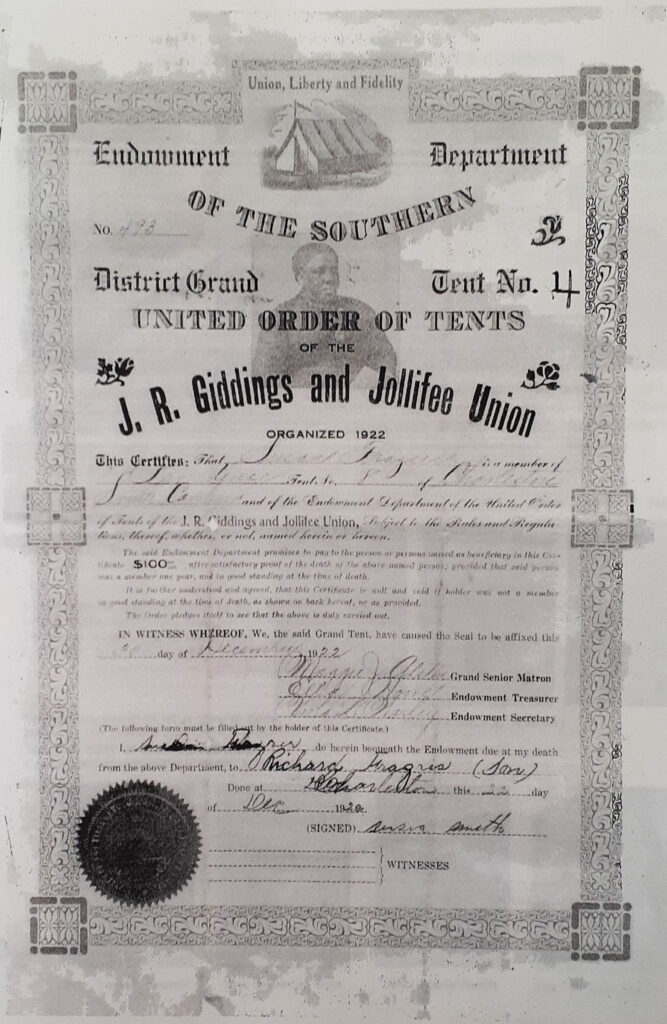 Union, Liberty and Fidelity
Endowment Department
OF THE SOUTHERN
No. 493
District Grand Tent No. 4
UNITED ORDER OF TENTS
OF THE
J. R. Giddings and Jollifee Union
ORGANIZED 1922
This Certifies: That is a member of
Tent No. 8 of Charleston
South Carolina and of the Endowment Department of the United Order
of Tents of the J. R. Giddings and Jollifee Union, Subject to the Rules and Regula-
tions, thereof, whether, or not, named herein or hereon.
The said Endowment Department promises to pay to the person or persons named as beneficiary in this Cer-
tificate $100 after satisfactory proof of the death of the above named person; provided that said person
was a member one year, and in good standing at the time of death.
It is further understood and agreed, that this Certificate is null and void if holder was not a member
in good standing at the time of death, as shown on back hereof, or as provided.
The Order pledges itself to see that the above is duly carried out.
IN WITNESS WHEREOF, We, the said Grand Tent, have caused the Seal to be affixed this
day of December, 1922
Grand Senior Matron
Endowment Treasurer
Endowment Secretary
(The following form must be filled out by the holder of this Certificate.)
I, do herein bequeath the Endowment due at my death
from the above Department, to Richard (Son)
Done at Charleston this 22 day
of Dec 192
(SIGNED) susan smith
WITNESSES